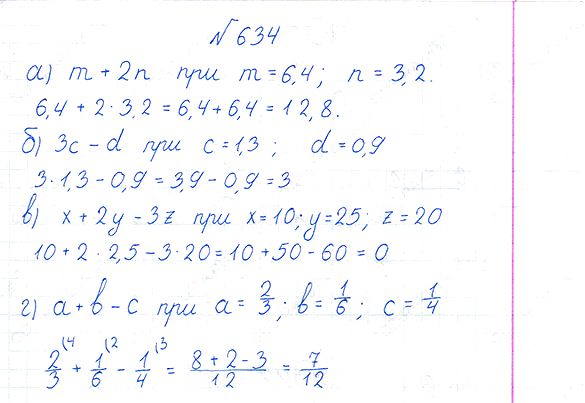 № 634
а) m + 2n при m = 6,4; n = 3,2.
6,4 + 2 · 3,2 = 6,4 + 6,4 = 12,8.
б) 3c - d при c = 1,3; d = 0,9
3 · 1,3 - 0,9 = 3,9 - 0,9 = 3
в) x + 2y - 3z при x = 10; y = 25; z = 20
10 + 2 · 2,5 - 3 · 20 = 10 + 50 - 60 = 0
г) a + b - c при a = 2/3; b = 1/6; c = 1/4
2/3 (4 + 1/6 (2 - 1/4 (3 = 8 + 2 - 3 / 12 = 7/12